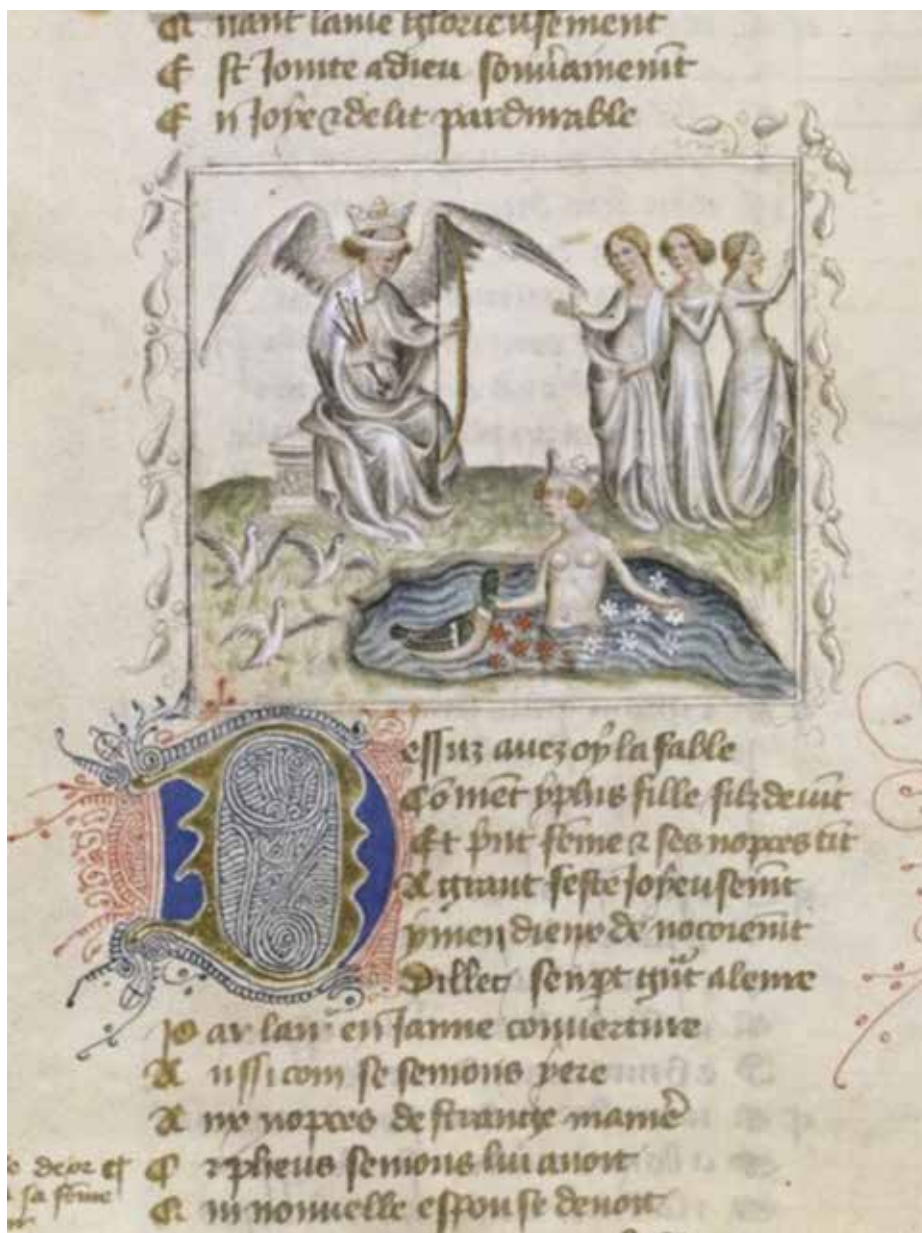 E nant lame glorieusement
E st Jointe a dieu souvrainement
E n Joye & delit pardurable
Dessuz avez oy la fable
Coment yphis fille filz devint
Et print feme & ses nopces tint
A grant feste Joyeusement
ymen dieux de
par lair en Jaune couverture
A ussi com se semons yere
A ux nopces destrange maniere
Orpheus semons lui avoit
Qui nouvelle espouse devoit
sa feme